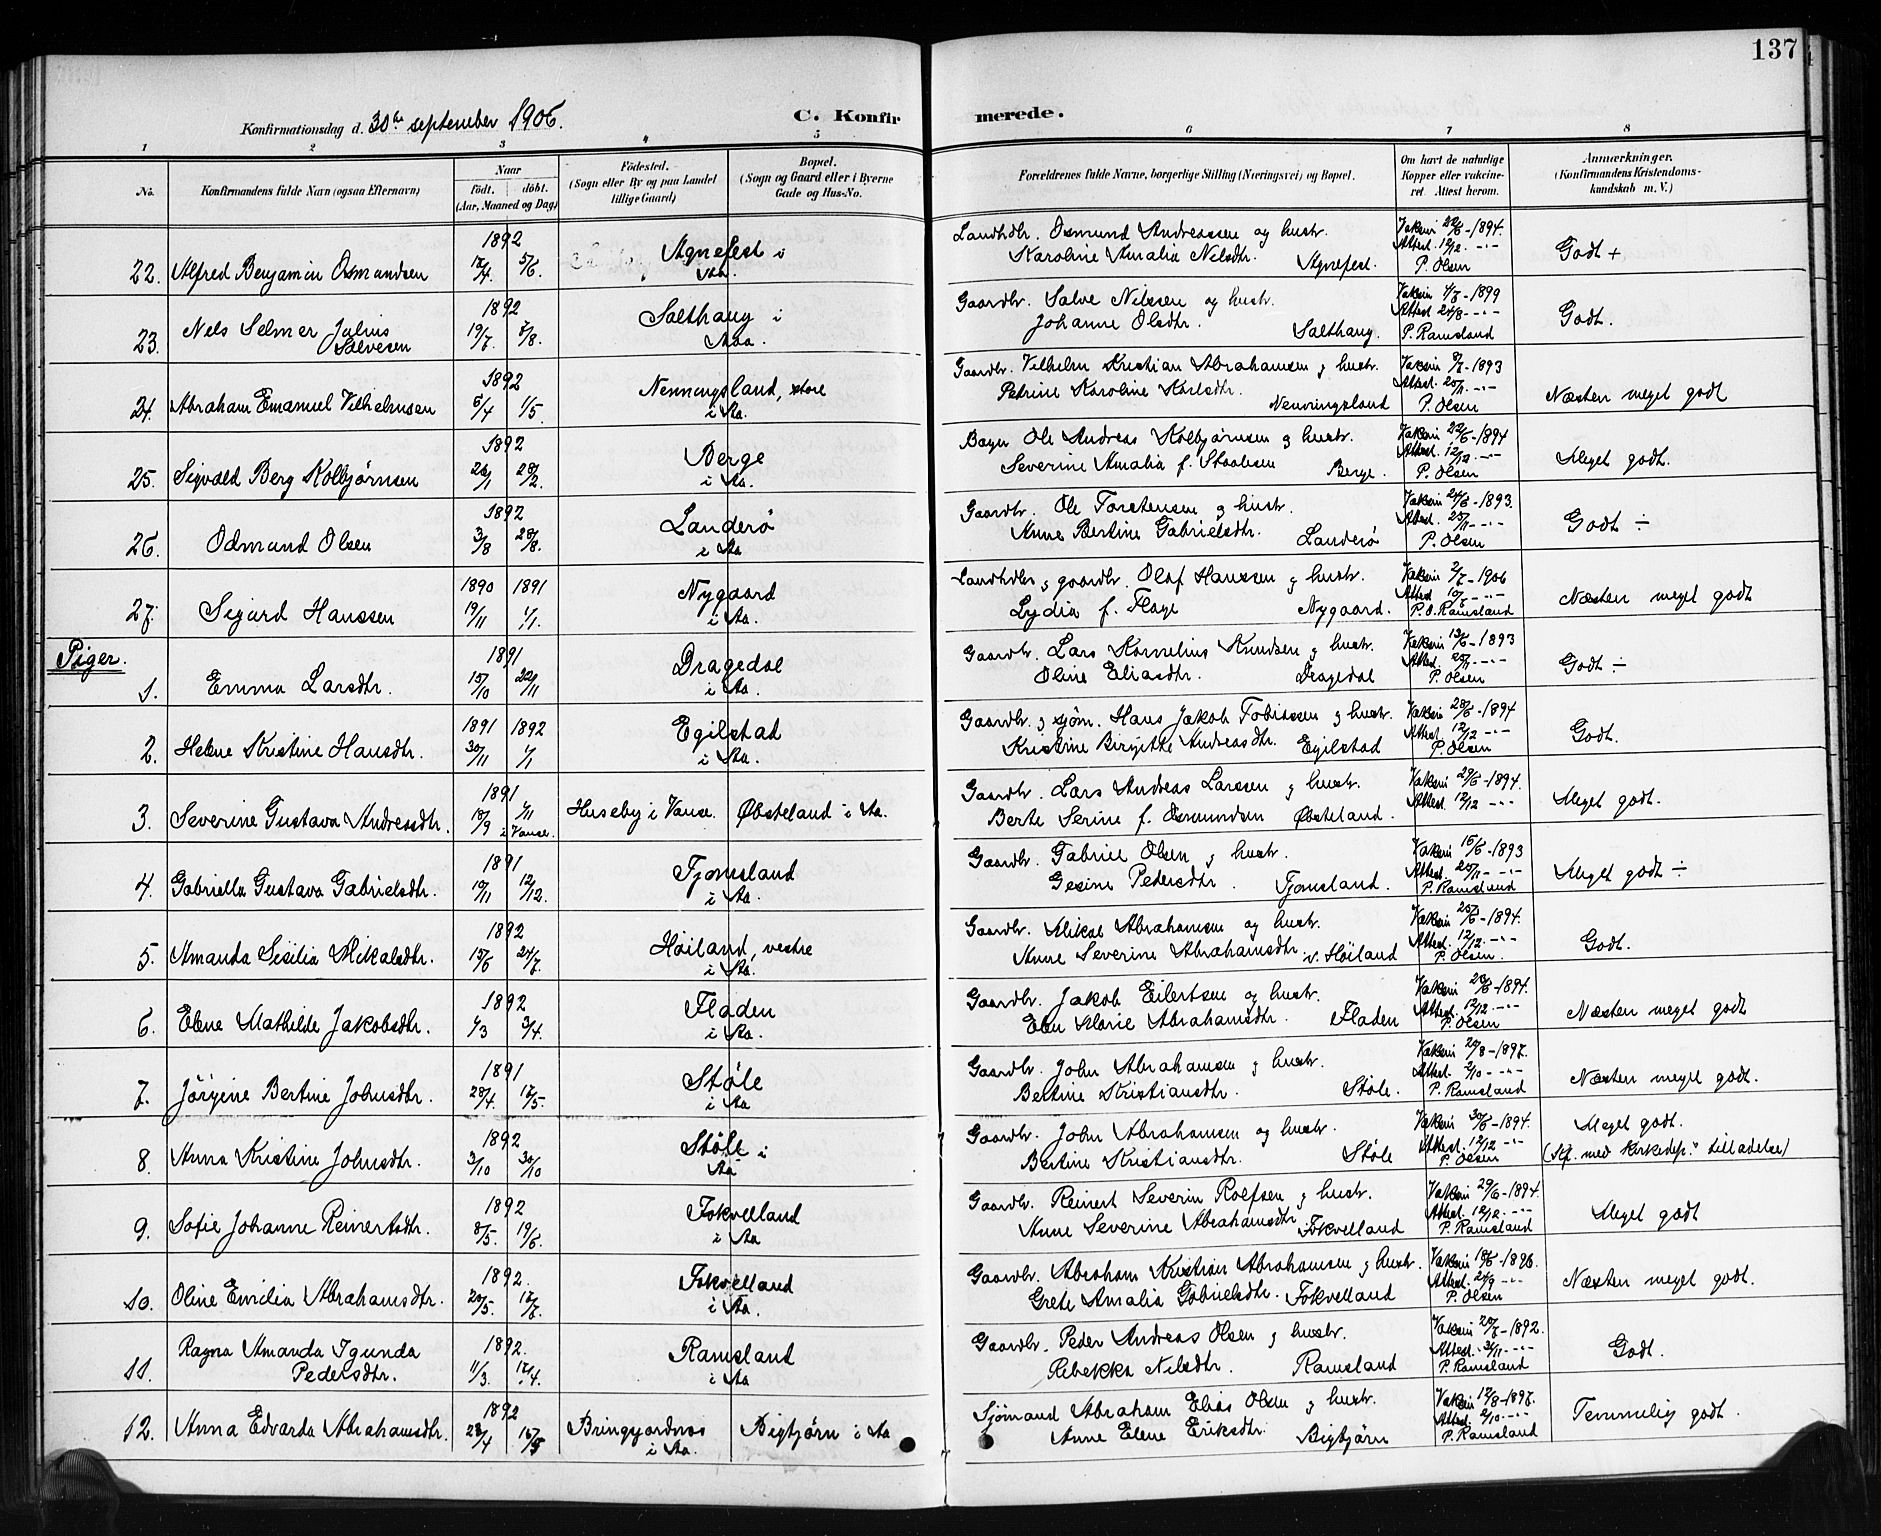 137
Konfirmationsdag d. 30te september 1906.
C. Konfirmerede.
1 2 3 4 5 6 7 8
No. Konfirmandens fulde Navn (ogsaa Efternavn) Naar født. døbt. (Aar, Maaned og Dag) Fødested. (Sogn eller By og paa Landet tillige Gaard) Bopæl. (Sogn og Gaard eller i Byerne Gade og Hus-No. Forældrenes fulde Navne, borgerlige Stilling (Næringsvei) og Bopæl. Om havt de naturlige Kopper eller vakcineret. Attest herom. Anmærkninger. (Konfirmandens Kristendomskundskab m. V.)
22. Alfred Benjamin Osmundsen 1892 5/6. Agnefest i Aa. Landhdlr. Osmund Andreassen og hustr. Karoline Amalia Nilsdtr. Agnefest. Vakcin 22/6-1894. Attest. 12/12. -"- P. Olsen Godt +
23. Nels Selmer Julius Salvesen 1892 19/7. /8. Salthaug i Aa. Gaardbr. Salve Nilssen og hustr. Johanne Olsdtr. Salthaug. Vakcin 4/7-1899 Attest 24/8 -"- P. Ramsland Godt.
24. Abraham Emanuel Vilhelmsen 1892 /4 1/5. Nenningsland, store i Aa. Gaardbr. Vilhelm Kristian Abrahamsen & hustr. Petrine Karoline Karlsdtr. Nenningsland Vakcin -1893 Attest. 25/11. -"- P. Olsen Næsten meget godt
25. Sigvald Berg Kolbjørnsen 1892 26/1 28/2. Berge i Aa. Ole Andreas Kolbjørnsen & hustr. Severine Amalia f. Staalesen Berge. Vakcin 22/6-1894 Attest. 12/12. -"- P. Olsen Meget godt.
26. Odmund Olsen 1892 3/8 28/8. Landerø i Aa Gaardbr. Ole Torstensen & hustr. Anne Bertine Gabrielsdtr. Landerø Vakcin 24/6-1893. Attest. 25/11 -"- P. Olsen Godt ÷
27. Sigurd Hanssen 1890 1891 19/11 1/1. Nygaard i Aa. Landhdlr & gaardbr. Olaf Hanssen & hustr. Lydia f. Flage Nygaard. Vakcin 2/7-1906 Attest 10/7 -"- P. O. Ramsland Næsten meget godt
Piger.
1. Emma Larsdtr. 1891 15/10 22/11 Dragedal i Aa. Gaardbr. Lars Kornelius Knudsen & hustr. Oline Eliasdtr. Dragedal Vakcin 13/6-1893 Attest. 25/11 -"- P. Olsen Godt ÷
2. Helene Kristine Hansdtr. 1891 1892 30/11 1/1 Egilstad i Aa. Gaardbr. & sjøm. Hans Jakob Tobiassen & hustr. Kristine Birgitte Andreasdtr. Egilstad Vakcin 28/6-1894 Attest. 12/12 -"- P. Olsen Godt.
3. Severine Gustava Andreasdtr. 1891 /9 1/11 i Vanse. Huseby i Vanse. Øbsteland i Aa. Gaardbr. Lars Andreas Larssen & hustr. Berte Serine f. Osmundsen Øbsteland. Vakcin 29/6-1894. Attest 12/12 -"- Meget godt.
4. Gabriella Gustava Gabrielsdtr. 1891 19/11 12/12. Tjomsland i Aa. Gaardbr. Gabriel Olsen & hustr. Gesine Pedersdtr. Tjomsland. Vakcin 15/6-1893 Attest. 25/11 -"- P. Ramsland Meget godt ÷
5. Amanda Sisilia Mikalsdtr. 1892 15/6 24/7. Høiland, vestre i Aa. Gaardbr. Mikal Abrahamsen og hustr. Anne Severine Abrahamsdtr. v. Høiland Vakcin 25/6-1894. Attest. 12/12. -"- P. Olsen. Godt.
6. Elene Mathilde Jakobsdtr. 1892 1/3 3/4. Fladen i Aa. Gaardbr. Jakob Eilertsen og hustr. Elen Marie Abrahamsdtr. Fladen Vakcin -1894. Attest. 12/12. -"- P. Olsen Næsten meget godt
7. Jörgine Bertine Johnsdtr. 1891 28/4. /5. Støle i Aa Gaardbr. John Abrahamsen & hustr. Bertine Kristiansdtr. Støle. Vakcin 20/8-1897. Attest 2/10 -"- P. Ramsland Næsten meget godt.
8. Anna Kristine Johnsdtr. 1892 3/10 30/10 Støle i Aa Gaardbr. John Abrahamsen og hustr. Bertine Kristiansdtr. Støle Vakcin 30/6-1894. Attest. 12/12 -"- P. Olsen Meget godt. (Kf. med kirkedep.s tilladelse)
9. Sofie Johanne Reinertsdtr. 1892 8/5. 19/6. Fokvelland i Aa Gaardbr. Reinert Severin Rolfsen & hustr. Anne Severine Abrahamsdtr. Fokvelland Vakcin 29/6-1894. Attest. 12/12. -"- P. Ramsland Meget godt
10. Oline Emilia Abrahamsdtr. 1892. /5. 17/7. Fokvelland i Aa. Gaardbr. Abraham Kristian Abrahamsen & hustr. Grete Amalia Gabrielsdtr. Fokvelland Vakcin 18/6-1896. Attest. 24/9 -"- P. Olsen Næsten meget godt.
11. Ragna Amanda Igunda Pedersdtr. 1892. 11/3. 17/4. Ramsland i Aa Gaardbr. Peder Andreas Olsen & hustr. Rebekka Nilsdtr. Ramsland Vakcin 20/7-1892. Attest. /11 -"- P. Ramsland Godt.
12. Anna Edvarda Abrahamsdtr. 1892 23/4 15/5 Bringjordnes i Aa. Bigtjørn i Aa Sjømand Abraham Elias Olsen & hustr. Anne Elene Eriksdtr. Bigtjørn Vakcin 12/8-1897. Attest. 2/10. -"- P. Ramsland Temmelig godt.